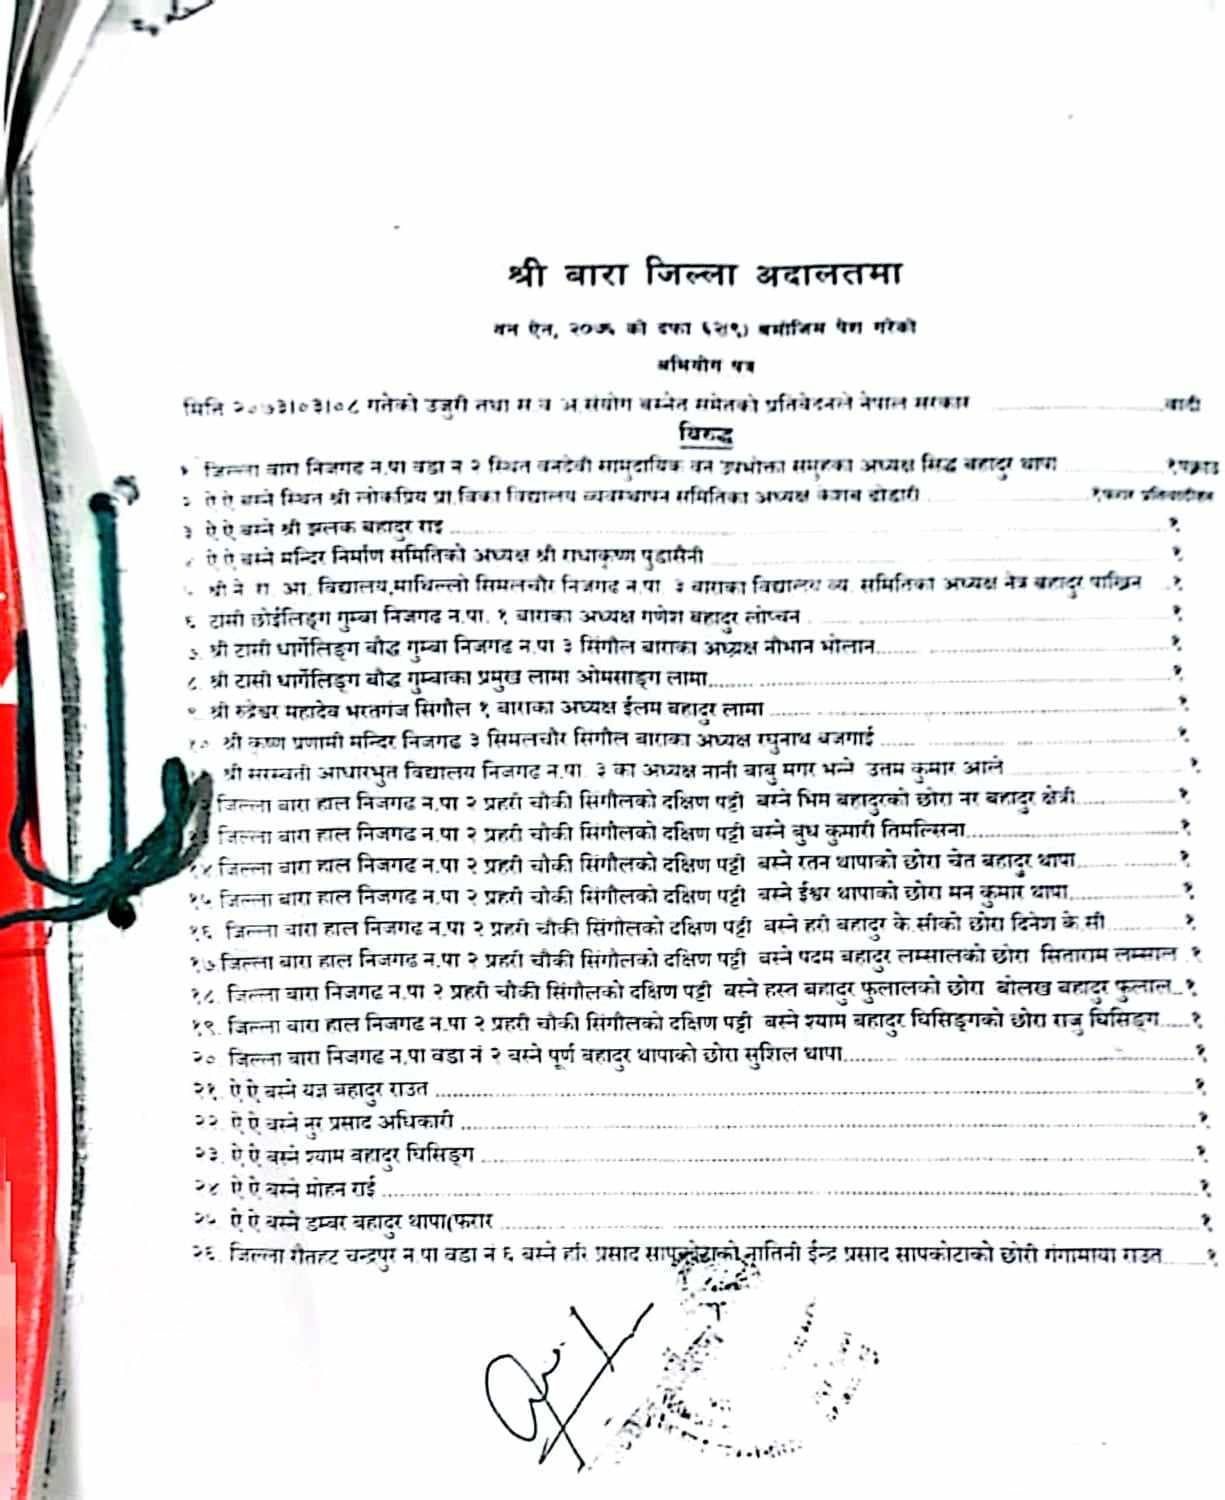 श्री बारा जिल्ला अदालतमा
वन ऐन, २०७६ को दफा बमोजिम पेश गरेको
अभियोग पत्र
मिति २०७३।०३।०८ गतेको उजुरी तथा स.व.अ.संयोग बस्नेत समेतको प्रतिवेदनले नेपाल सरकार ........ वादी
विरुद्ध
१ जिल्ला बारा निजगढ न.पा वडा न २ स्थित वनदेवी सामुदायिक वन उपभोक्ता समुहका अध्यक्ष सिद्ध बहादुर थापा ........ १पक्राउ
२ ऐ ऐ बस्ने स्थित श्री लोकप्रिय प्रा.विका विद्यालय व्यवस्थापन समितिका अध्यक्ष केशब ढोढारी ........ १फरार प्रतिवादीहरु
३ ऐ ऐ बस्ने श्री झलक बहादुर राइ ........ १
४ ऐ ऐ बस्ने मन्दिर निर्माण समितिको अध्यक्ष श्री राधाकृष्ण पुडासैनी ........ १
५ श्री ने. रा. आ. विद्यालय,माथिल्लो सिमलचौर निजगढ न.पा. ३ बाराका विद्यालय व्य. समितिका अध्यक्ष नेत्र बहादुर पाख्रिन ..१
६. टासी छोईलिङ्ग गुम्बा निजगढ न.पा. १ बाराका अध्यक्ष गणेश बहादुर लोप्चन ........ १
७. श्री टासी धार्गेलिङ्ग बौद्ध गुम्बा निजगढ न.पा ३ सिंगौल बाराका अध्यक्ष नौभान भोलान........ १
८. श्री टासी धार्गेलिङ्ग बौद्ध गुम्बाका प्रमुख लामा ओमसाङ्ग लामा........ १
९. श्री रुद्रेश्वर महादेव भरतगंज सिगौल १ बाराका अध्यक्ष ईलम बहादुर लामा ........ १
१०. श्री कृष्ण प्रणामी मन्दिर निजगढ ३ सिमलचौर सिंगौल बाराका अध्यक्ष रघुनाथ बजगाई ........ १
श्री सरस्वती आधारभुत विद्यालय निजगढ न.पा. ३ का अध्यक्ष नानी बाबु मगर भन्ने उत्तम कुमार आले ........ १
जिल्ला बारा हाल निजगढ न.पा २ प्रहरी चौकी सिंगौलको दक्षिण पट्टी बस्ने भिम बहादुरको छोरा नर बहादुर क्षेत्री........ १
जिल्ला बारा हाल निजगढ न.पा २ प्रहरी चौकी सिंगौलको दक्षिण पट्टी बस्ने बुध कुमारी तिमल्सिना........ १
१४ जिल्ला बारा हाल निजगढ न.पा २ प्रहरी चौकी सिंगौलको दक्षिण पट्टी बस्ने रतन थापाको छोरा चेत बहादुर थापा........ १
१५ जिल्ला बारा हाल निजगढ न.पा २ प्रहरी चौकी सिंगौलको दक्षिण पट्टी बस्ने ईश्वर थापाको छोरा मन कुमार थापा........ १
१६ जिल्ला बारा हाल निजगढ न.पा २ प्रहरी चौकी सिंगौलको दक्षिण पट्टी बस्ने हरी बहादुर के.सीको छोरा दिनेश के.सी ........ १
१७ जिल्ला बारा हाल निजगढ न.पा २ प्रहरी चौकी सिंगौलको दक्षिण पट्टी बस्ने पदम बहादुर लम्सालको छोरा सिताराम लम्साल .१
१८. जिल्ला बारा निजगढ न.पा २ प्रहरी चौकी सिंगौलको दक्षिण पट्टी बस्ने हस्त बहादुर फुलालको छोरा बोलख बहादुर फुलाल..१
१९. जिल्ला बारा हाल निजगढ न.पा २ प्रहरी चौकी सिंगौलको दक्षिण पट्टी बस्ने श्याम बहादुर घिसिङ्गको छोरा राजु घिसिङ्ग.....१
२० जिल्ला बारा निजगढ न.पा वडा नं २ बस्ने पूर्ण बहादुर थापाको छोरा सुशिल थापा........ १
२१. ऐ ऐ बस्ने यज्ञ बहादुर राउत ........ १
२२. ऐ ऐ बस्ने नुर प्रसाद अधिकारी ........ १
२३. ऐ ऐ बस्ने श्याम बहादुर घिसिङ्ग ........ १
२४ ऐ ऐ बस्ने मोहन राई ........ १
२५ ऐ ऐ बस्ने डम्बर बहादुर थापा(फरार ........ १
२६. जिल्ला रौतहट चन्द्रपुर न.पा वडा नं ६ बस्ने हरि प्रसाद सापकोटाको नातिनी ईन्द्र प्रसाद सापकोटाको छोरी गंगामाया राउत........ १